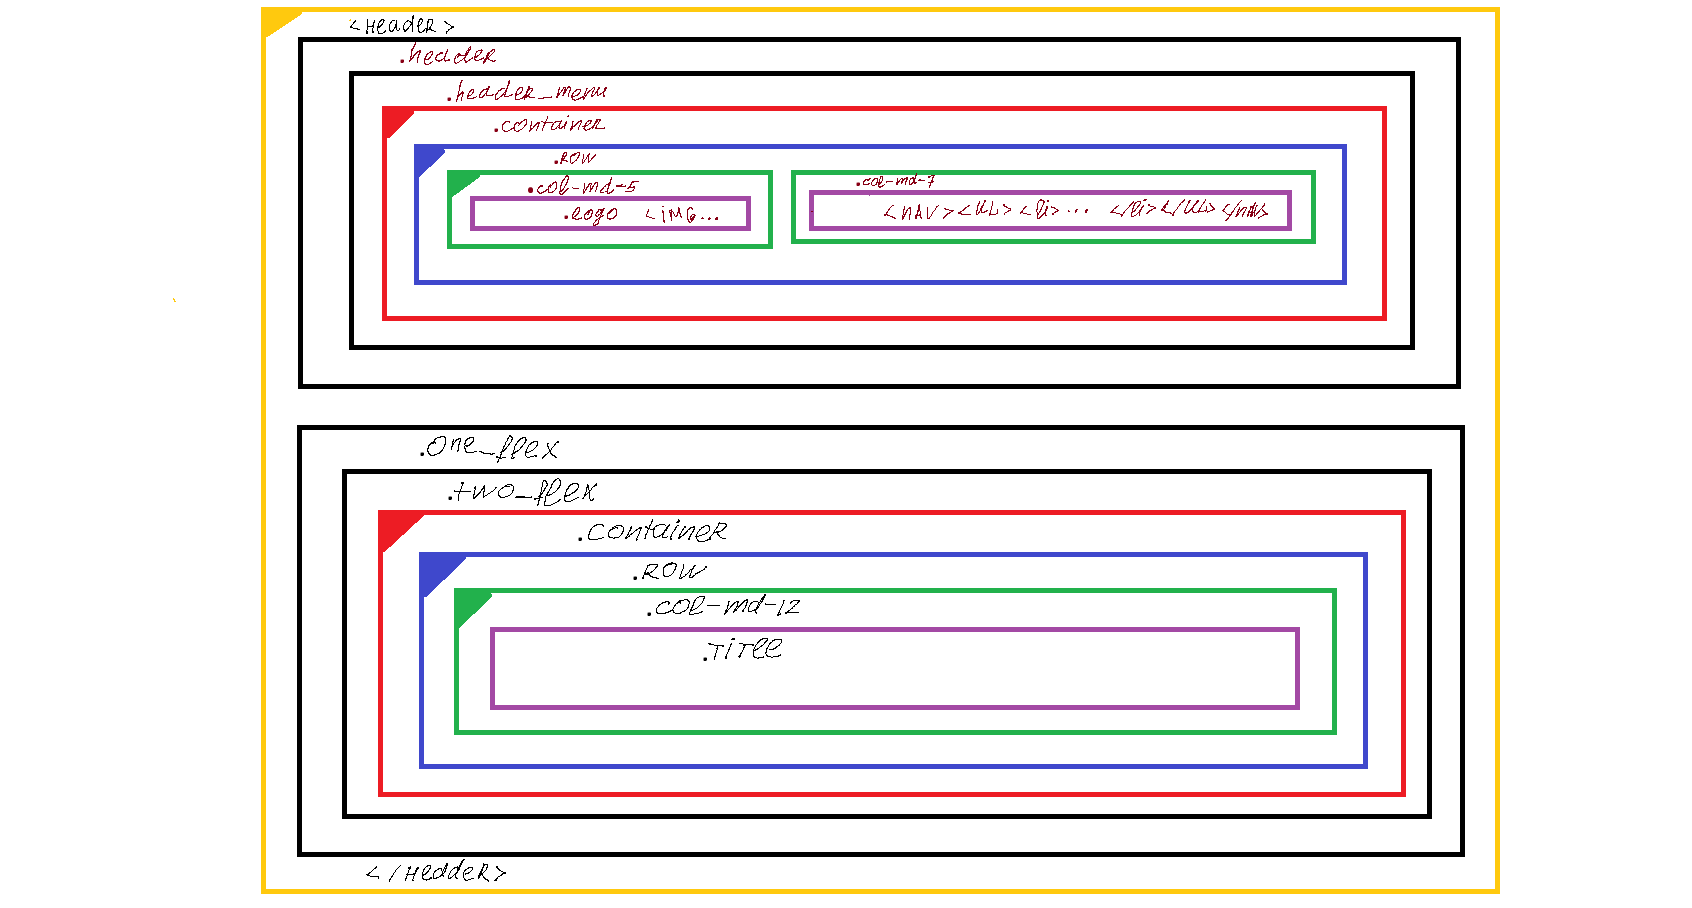 <Header>
.header
.header_menu
.container
.row
.col-md-5
.logo <img...
.col-md-7
<nav><ul><li>... </li></ul></nav>
.one_flex
.two_flex
.container
.row
.col-md-12
.Title
</Hedder>